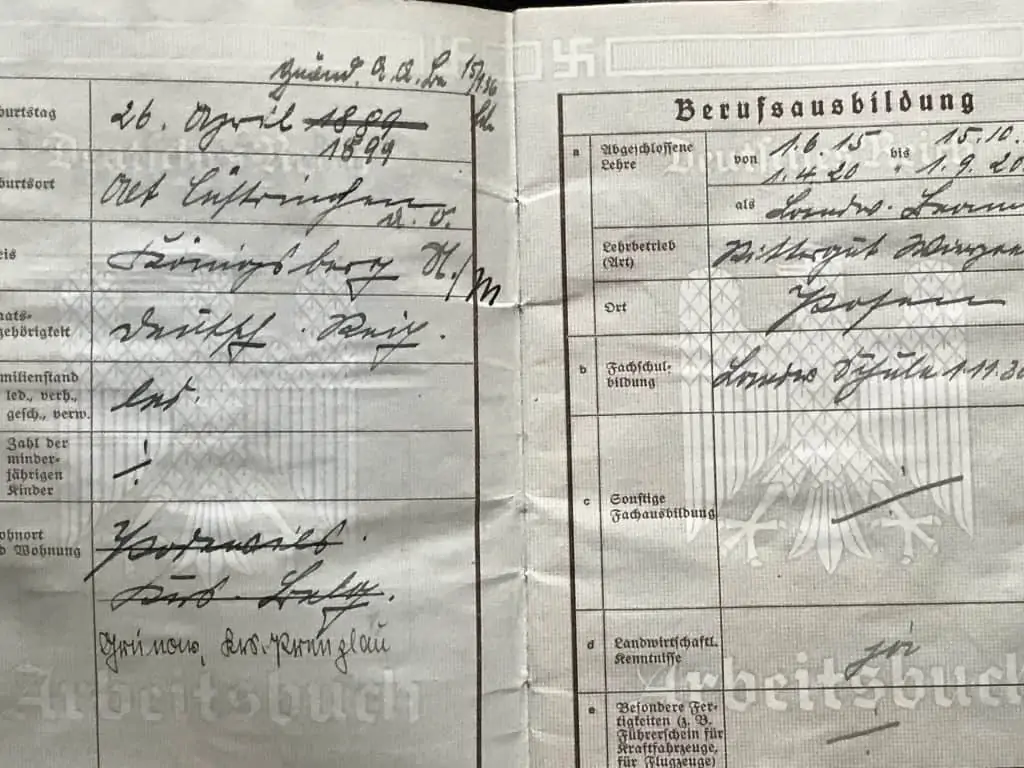 geänd. A. A. 15/1.36
burtstag
26. April 1889
1899
burtsort
Alt Lüstrinchen
a. O.
eis
Königsberg N./M
aats-
gehörigkeit
deutsch. Reich.
milienstand
led., verh.,
gesch., verw.
led.
Zahl der
minder-
jährigen
Kinder
ohnort
d Wohnung
Podewils.
Krs. Belg.
Grünow, Krs. Prenzlau
Arbeitsbuch
Berufsausbildung
a
Abgeschlossene
Lehre
von 1.6.15 bis 15.10.
1.4.20 " 1.9.20
als Landw. Beam
Lehrbetrieb
(Art)
Rittergut
Ort
Posen
b
Fachschul-
bildung
Landw Schule 1.11.
c
Sonstige
Fachausbildung
d
Landwirtschaftl.
Kenntnisse
ja
e
Besondere Fer-
tigkeiten (z. B.
Führerschein für
Kraftfahrzeuge,
für Flugzeuge)
Arbeitsbuch